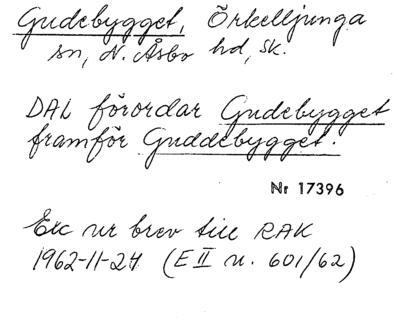 Gudebygget, Örkelljunga
sn, N. Åsbo hd, Sk.
DAL förordar Gudebygget
framför Guddebygget.
Nr 17396
Exc ur brev till RAK
1962-11-24 (E II u. 601/62)